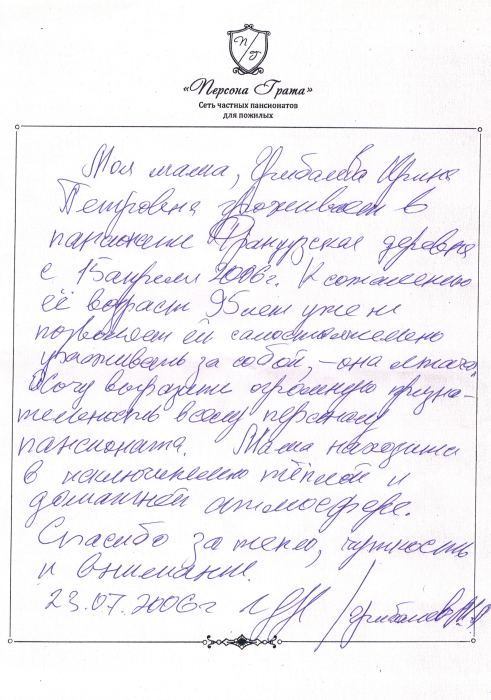 П Г
«Персона Грата»
Сеть частных пансионатов
для пожилых
Моя мама, Грибалева Ирина
Петровна проживает в
пансионате Французская деревня
с 15 апреля 2006г. К сожалению
её возраст 95 лет уже не
позволяет ей самостоятельно
ухаживать за собой, – она лежачая.
Хочу выразить огромную призна-
тельность всему персоналу
пансионата. Мама находится
в исключительно тёплой и
домашней атмосфере.
Спасибо за тепло, чуткость
и внимание.
23.07.2006г